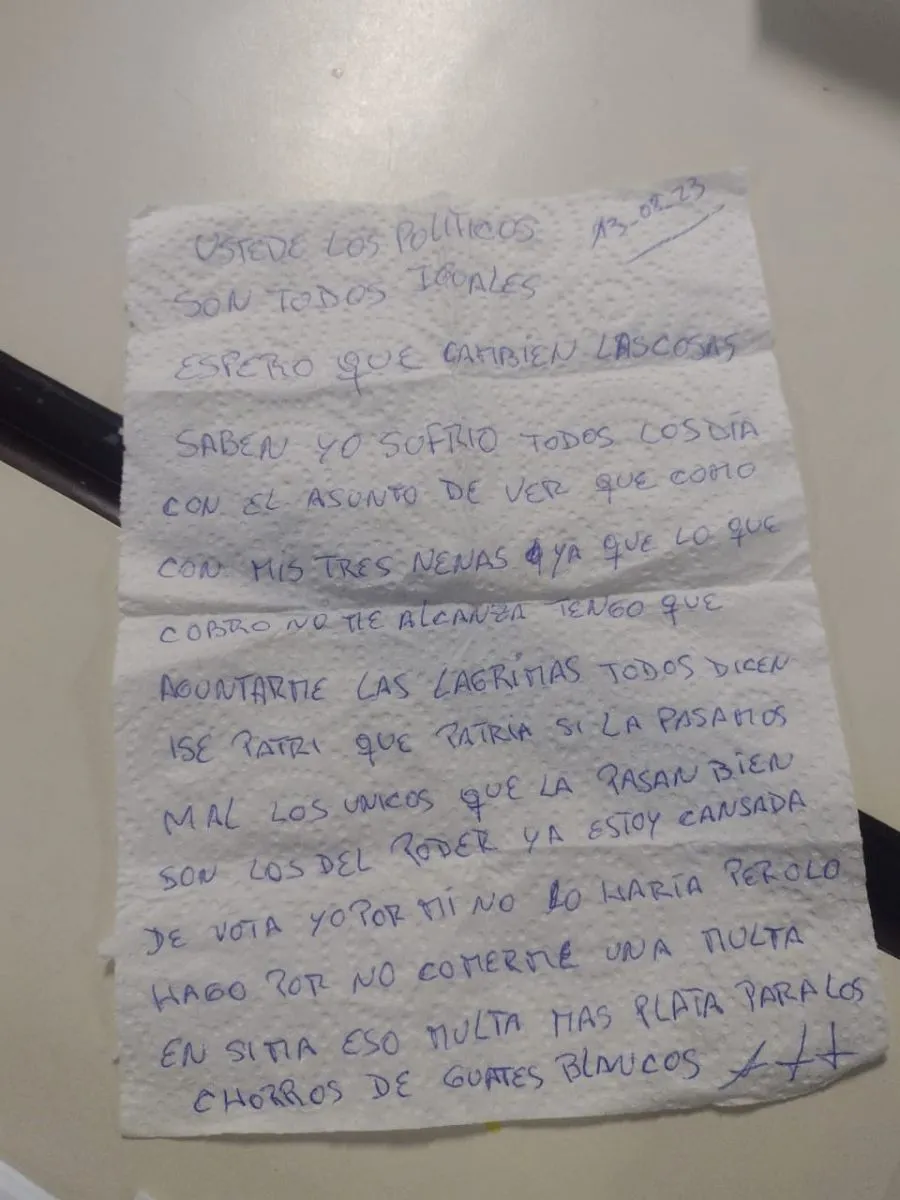 13-08-23
USTEDE LOS POLÍTICOS
SON TODOS IGUALES
ESPERO QUE CAMBIEN LAS COSAS
SABEN YO SUFRIO TODOS LOS DÍA
CON EL ASUNTO DE VER QUE COMO
CON MIS TRES NENAS YA QUE LO QUE
COBRO NO ME ALCANZA TENGO QUE
AGUNTARME LAS LAGRIMAS TODOS DICEN
ISE PATRI QUE PATRIA SI LA PASAMOS
MAL LOS UNICOS QUE LA PASAN BIEN
SON LOS DEL PODER YA ESTOY CANSADA
DE VOTA YO POR MÍ NO LO HARÍA PERO LO
HAGO POR NO COMERME UNA MULTA
EN SIMA ESO MULTA MAS PLATA PARA LOS
CHORROS DE GUATES BLANCOS